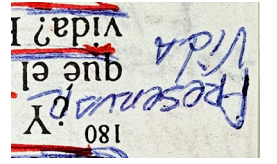 180 ¿Y
que el
vida?
Preservar
Vida